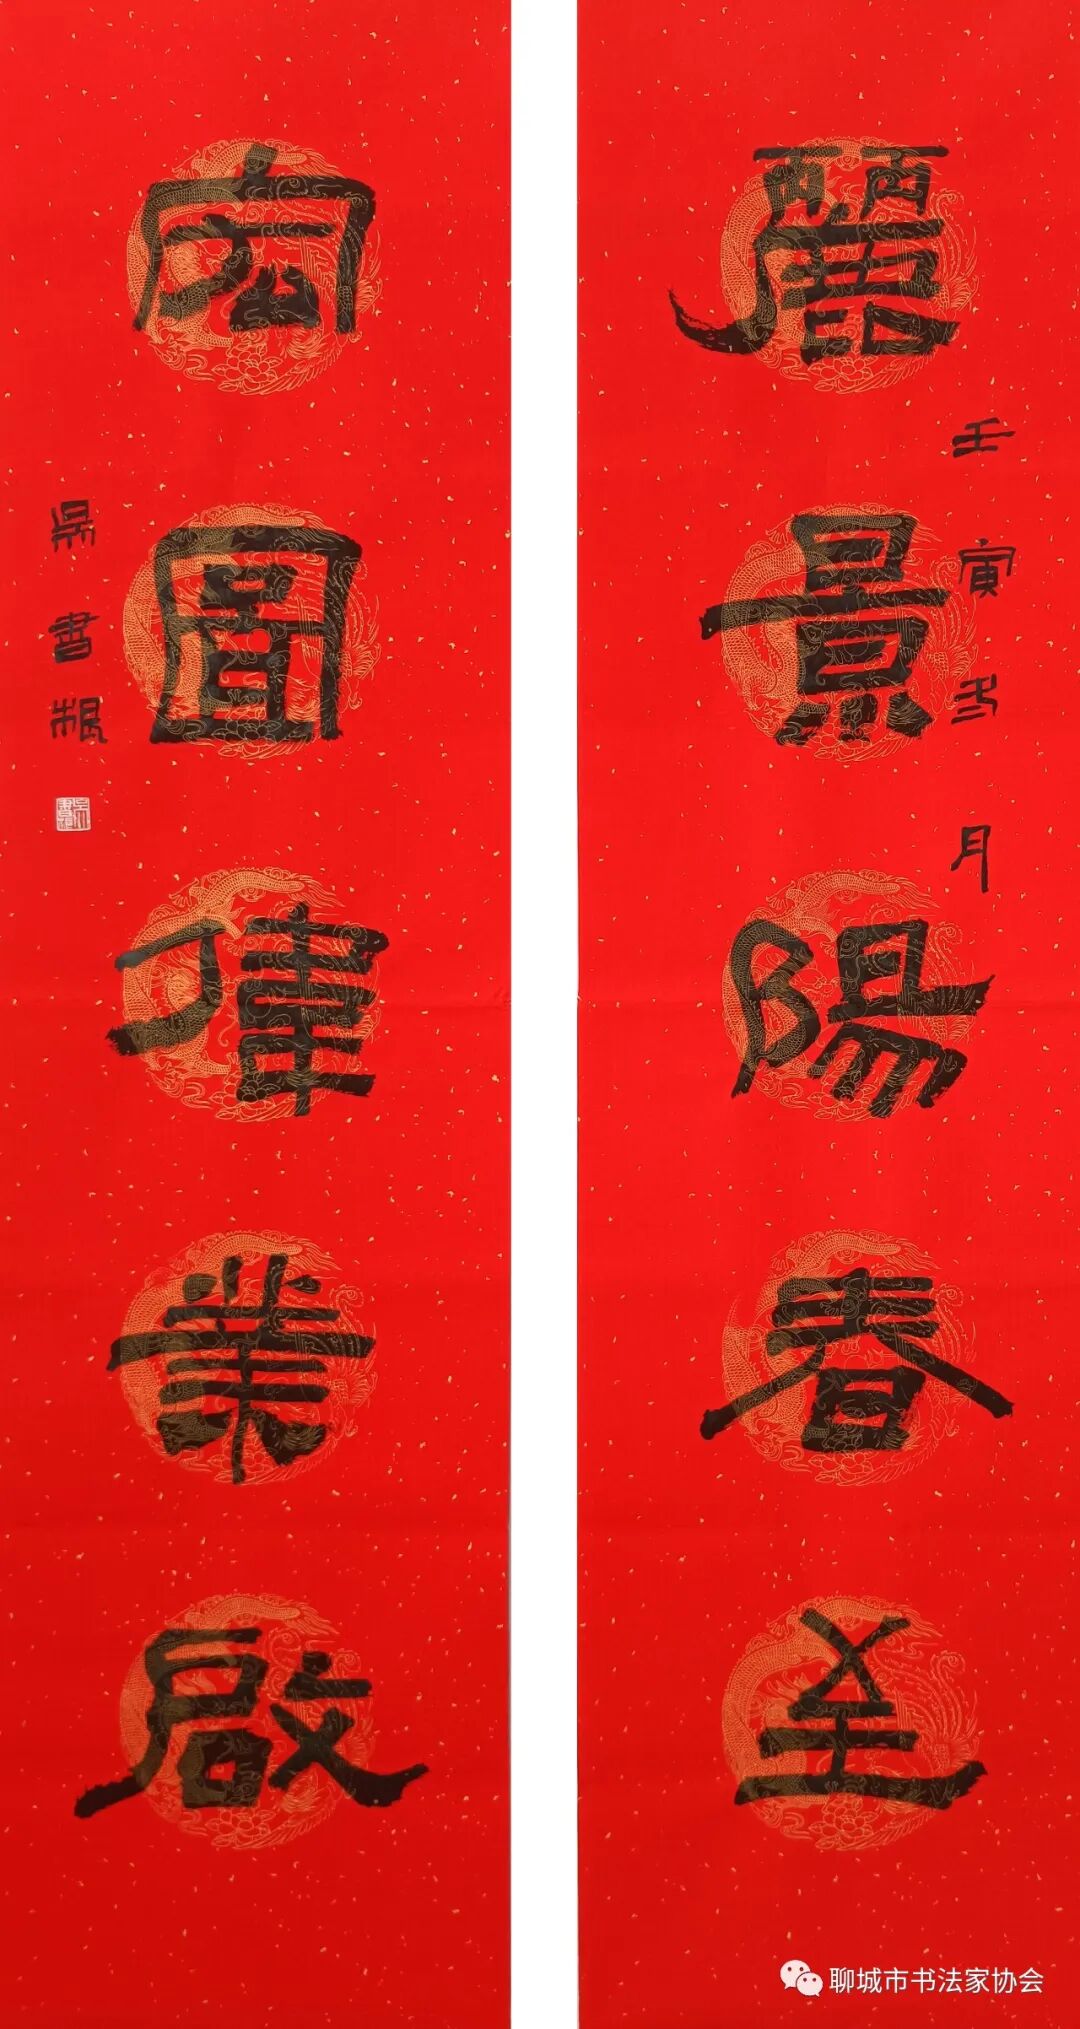 麗景陽春至
壬寅冬月
宏圖偉業啟
吳書根
聊城市书法家协会